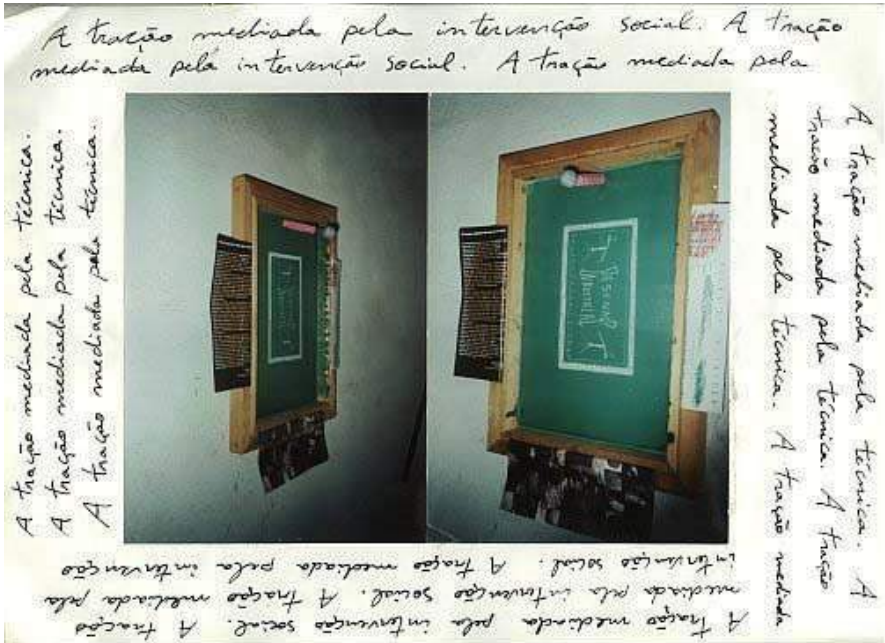 A tração mediada pela intervenção social. A tração
mediada pela intervenção social. A tração mediada pela
A tração mediada pela técnica.
A tração mediada pela técnica.
A tração mediada pela técnica.
A tração mediada pela técnica. A
tração mediada pela técnica. A tração
mediada pela técnica. A tração mediada
A tração mediada pela intervenção social. A tração
mediada pela intervenção social. A tração mediada pela
intervenção social. A tração mediada pela intervenção